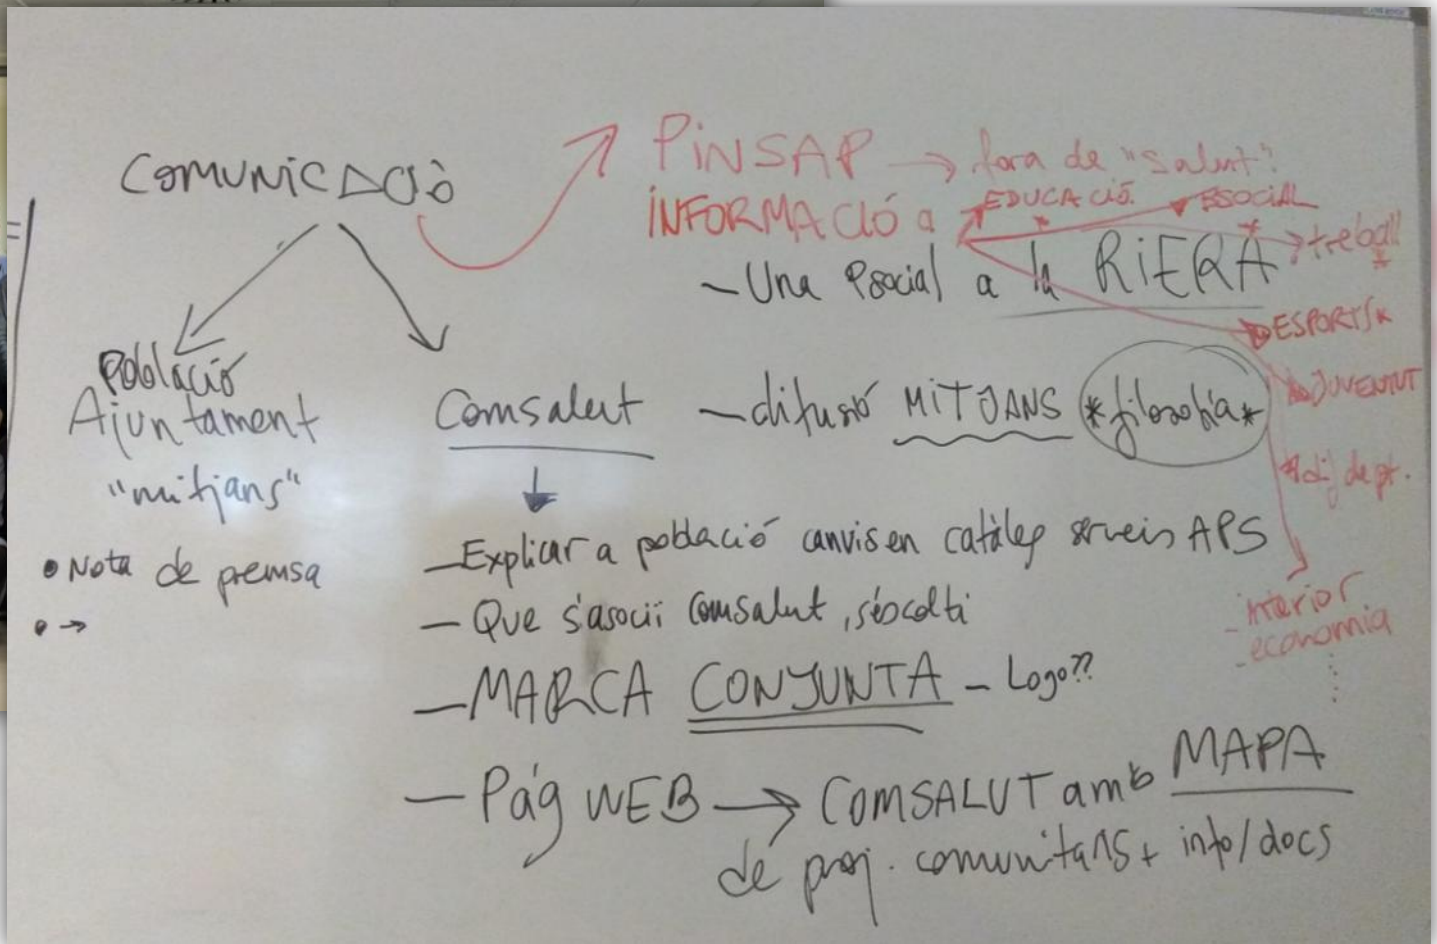 COMUNICACIÓ
PiNSAP → fora de "salut"!
iNFORMACIÓ a
EDUCACIÓ *
BSOCIAL *
treball *
ESPORTS *
JUVENTUT
dept.
- interior
- economia
- Una Psocial a la RiERA
Població
Ajuntament
"mitjans"
• Nota de premsa
• →
Comsalut
- difusió MiTJANS *filosofia*
- Explicar a població canvis en catàleg serveis APS
- Que s'associï Comsalut, s'escolti
- MARCA CONJUNTA - Logo??
- Pág WEB → COMSALUT amb MAPA
de proj. comunitaris + info/docs